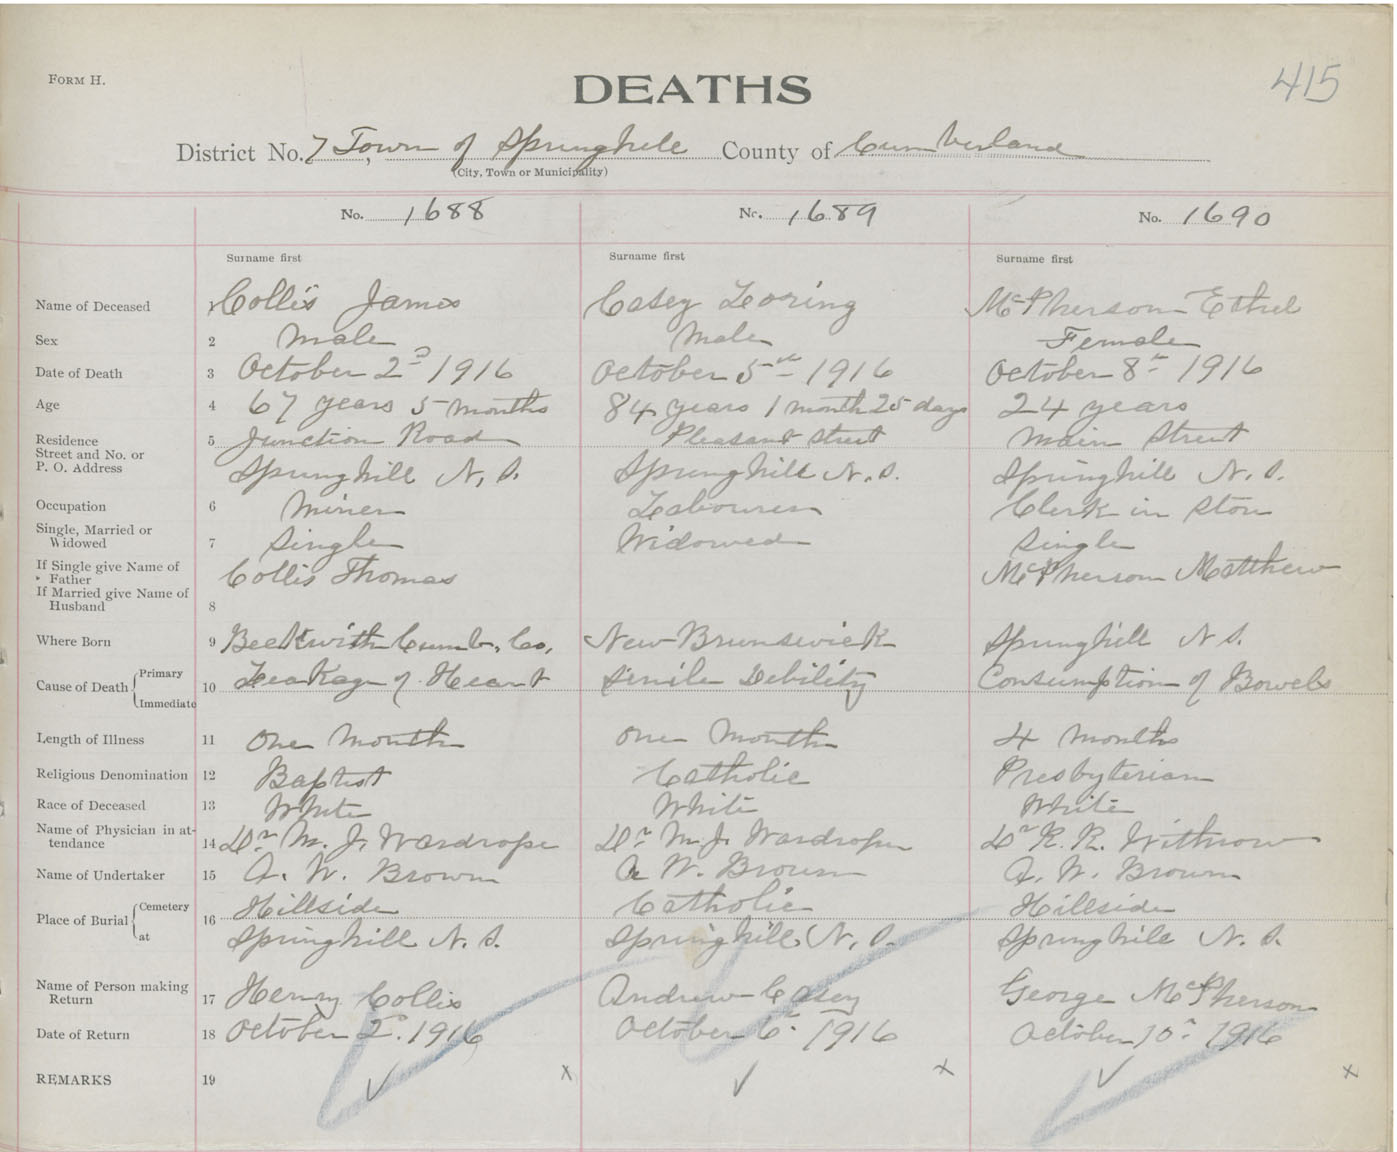 FORM H.
DEATHS
415
District No. 7 Town of Springhill County of Cumberland
(City, Town or Municipality)
No. 1688 No. 1689 No. 1690
Surname first Surname first Surname first
Name of Deceased 1 Collis James Casey Loring McPherson Ethel
Sex 2 Male Male Female
Date of Death 3 October 2d 1916 October 5th 1916 October 8th 1916
Age 4 67 years 5 months 84 years 1 month 25 days 24 years
Residence 5 Junction Road Pleasant Street Main Street
Street and No. or
P. O. Address Springhill N. S. Springhill N. S. Springhill N. S.
Occupation 6 Miner Labourer Clerk in Store
Single, Married or
Widowed 7 Single Widowed Single
If Single give Name of
Father Collis Thomas McPherson Matthew
If Married give Name of
Husband 8
Where Born 9 Beckwith Cumb. Co. New Brunswick Springhill N S.
Cause of Death Primary 10 Leakage of Heart Senile Debility Consumption of Bowels
Immediate
Length of Illness 11 One Month One Month 4 Months
Religious Denomination 12 Baptist Catholic Presbyterian
Race of Deceased 13 White White White
Name of Physician in at-
tendance 14 Dr M. J. Wardrope Dr M. J. Wardrope Dr R. R. Withrow
Name of Undertaker 15 A. W. Brown A W. Brown A. W. Brown
Place of Burial Cemetery 16 Hillside Catholic Hillside
at Springhill N. S. Springhill N. S. Springhill N. S.
Name of Person making
Return 17 Henry Collis Andrew Casey George McPherson
Date of Return 18 October 2d. 1916 October 6th. 1916 October 10th 1916
REMARKS 19 x x x